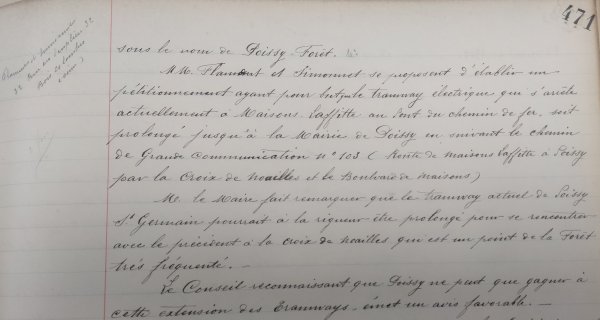 471
sous le nom de Poissy-Forêt.
M.M. Flament et Simonnet se proposent d'établir un
pétitionnement ayant pour but que le tramway électrique qui s'arrête
actuellement à Maisons Laffitte au Pont du chemin de fer, soit
prolongé jusqu'à la Mairie de Poissy en suivant le chemin
de Grande Communication n° 103 (Route de Maisons Laffitte à Poissy
par la Croix de Noailles et le Boulevard de Maisons)
M. le Maire fait remarquer que le tramway actuel de Poissy
St Germain pourrait à la rigueur être prolongé pour se rencontrer
avec le précédent à la Croix de Noailles, qui est un point de la Forêt
très fréquenté. —
Le Conseil reconnaissant que Poissy ne peut que gagner à
cette extension des Tramways émet un avis favorable. —